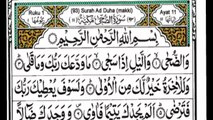 Ruku 1 (93) Surah Ad Duha (makki) Ayat 11
سُوْرَةُ الضُّحٰى مَكِّيَّةٌ
بِسْمِ اللّٰهِ الرَّحْمٰنِ الرَّحِيْمِ
وَالضُّحٰى وَالَّيْلِ اِذَا سَجٰى مَا وَدَّعَكَ رَبُّكَ وَمَا قَلٰى
وَلَلْاٰخِرَةُ خَيْرٌ لَّكَ مِنَ الْاُوْلٰى وَلَسَوْفَ يُعْطِيْكَ رَبُّكَ
فَتَرْضٰى اَلَمْ يَجِدْكَ يَتِيْمًا فَاٰوٰى وَوَجَدَكَ ضَآلًّا